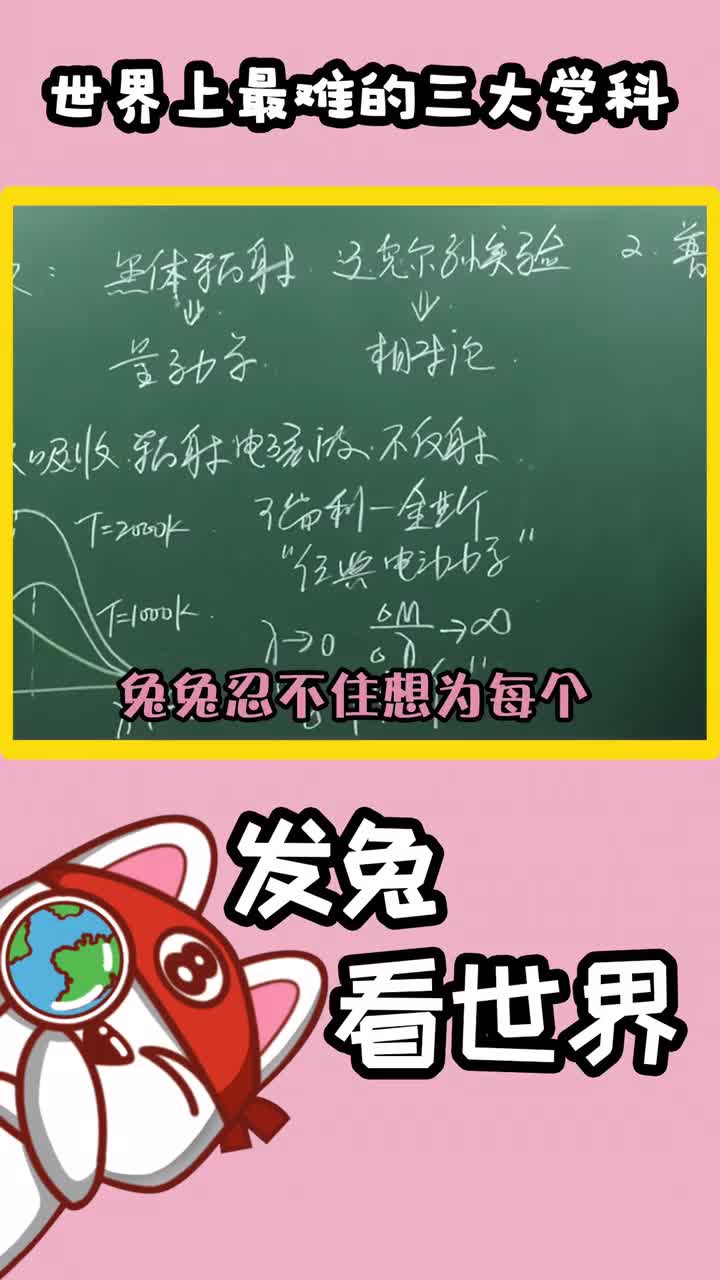 世界上最难的三大学科
黑体辐射 迈克尔孙实验 2. 普
⇓ ⇓
量子力学. 相对论.
吸收.辐射电磁波.不反射.
T=2000K. 瑞利一金斯
"经典电动力学"
T=1000K.
λ→0 ΔM/Δλ→∞
兔兔忍不住想为每个
发兔
看世界
8